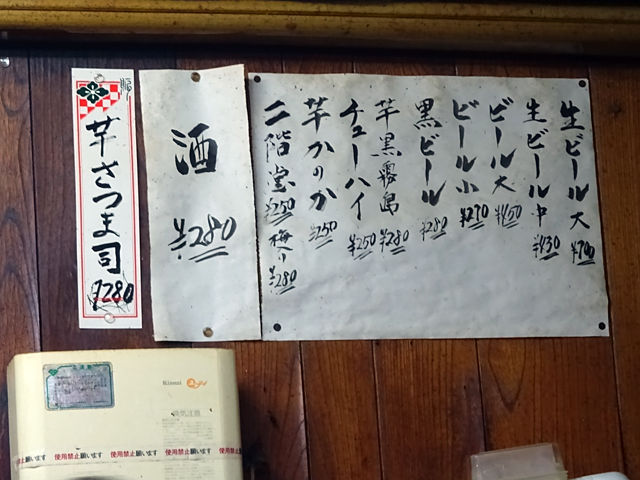 生ビール大 ¥700
生ビール中 ¥430
ビール大 ¥450
ビール小 ¥270
黒ビール ¥280
芋黒霧島 ¥280
チューハイ ¥250
芋かのか ¥250
二階堂 ¥250 梅入り ¥280
酒 ¥280
芋さつま司 ¥280
Rinnai
換気注意
使用禁止願います 使用禁止願います 使用禁止願います 使用禁止